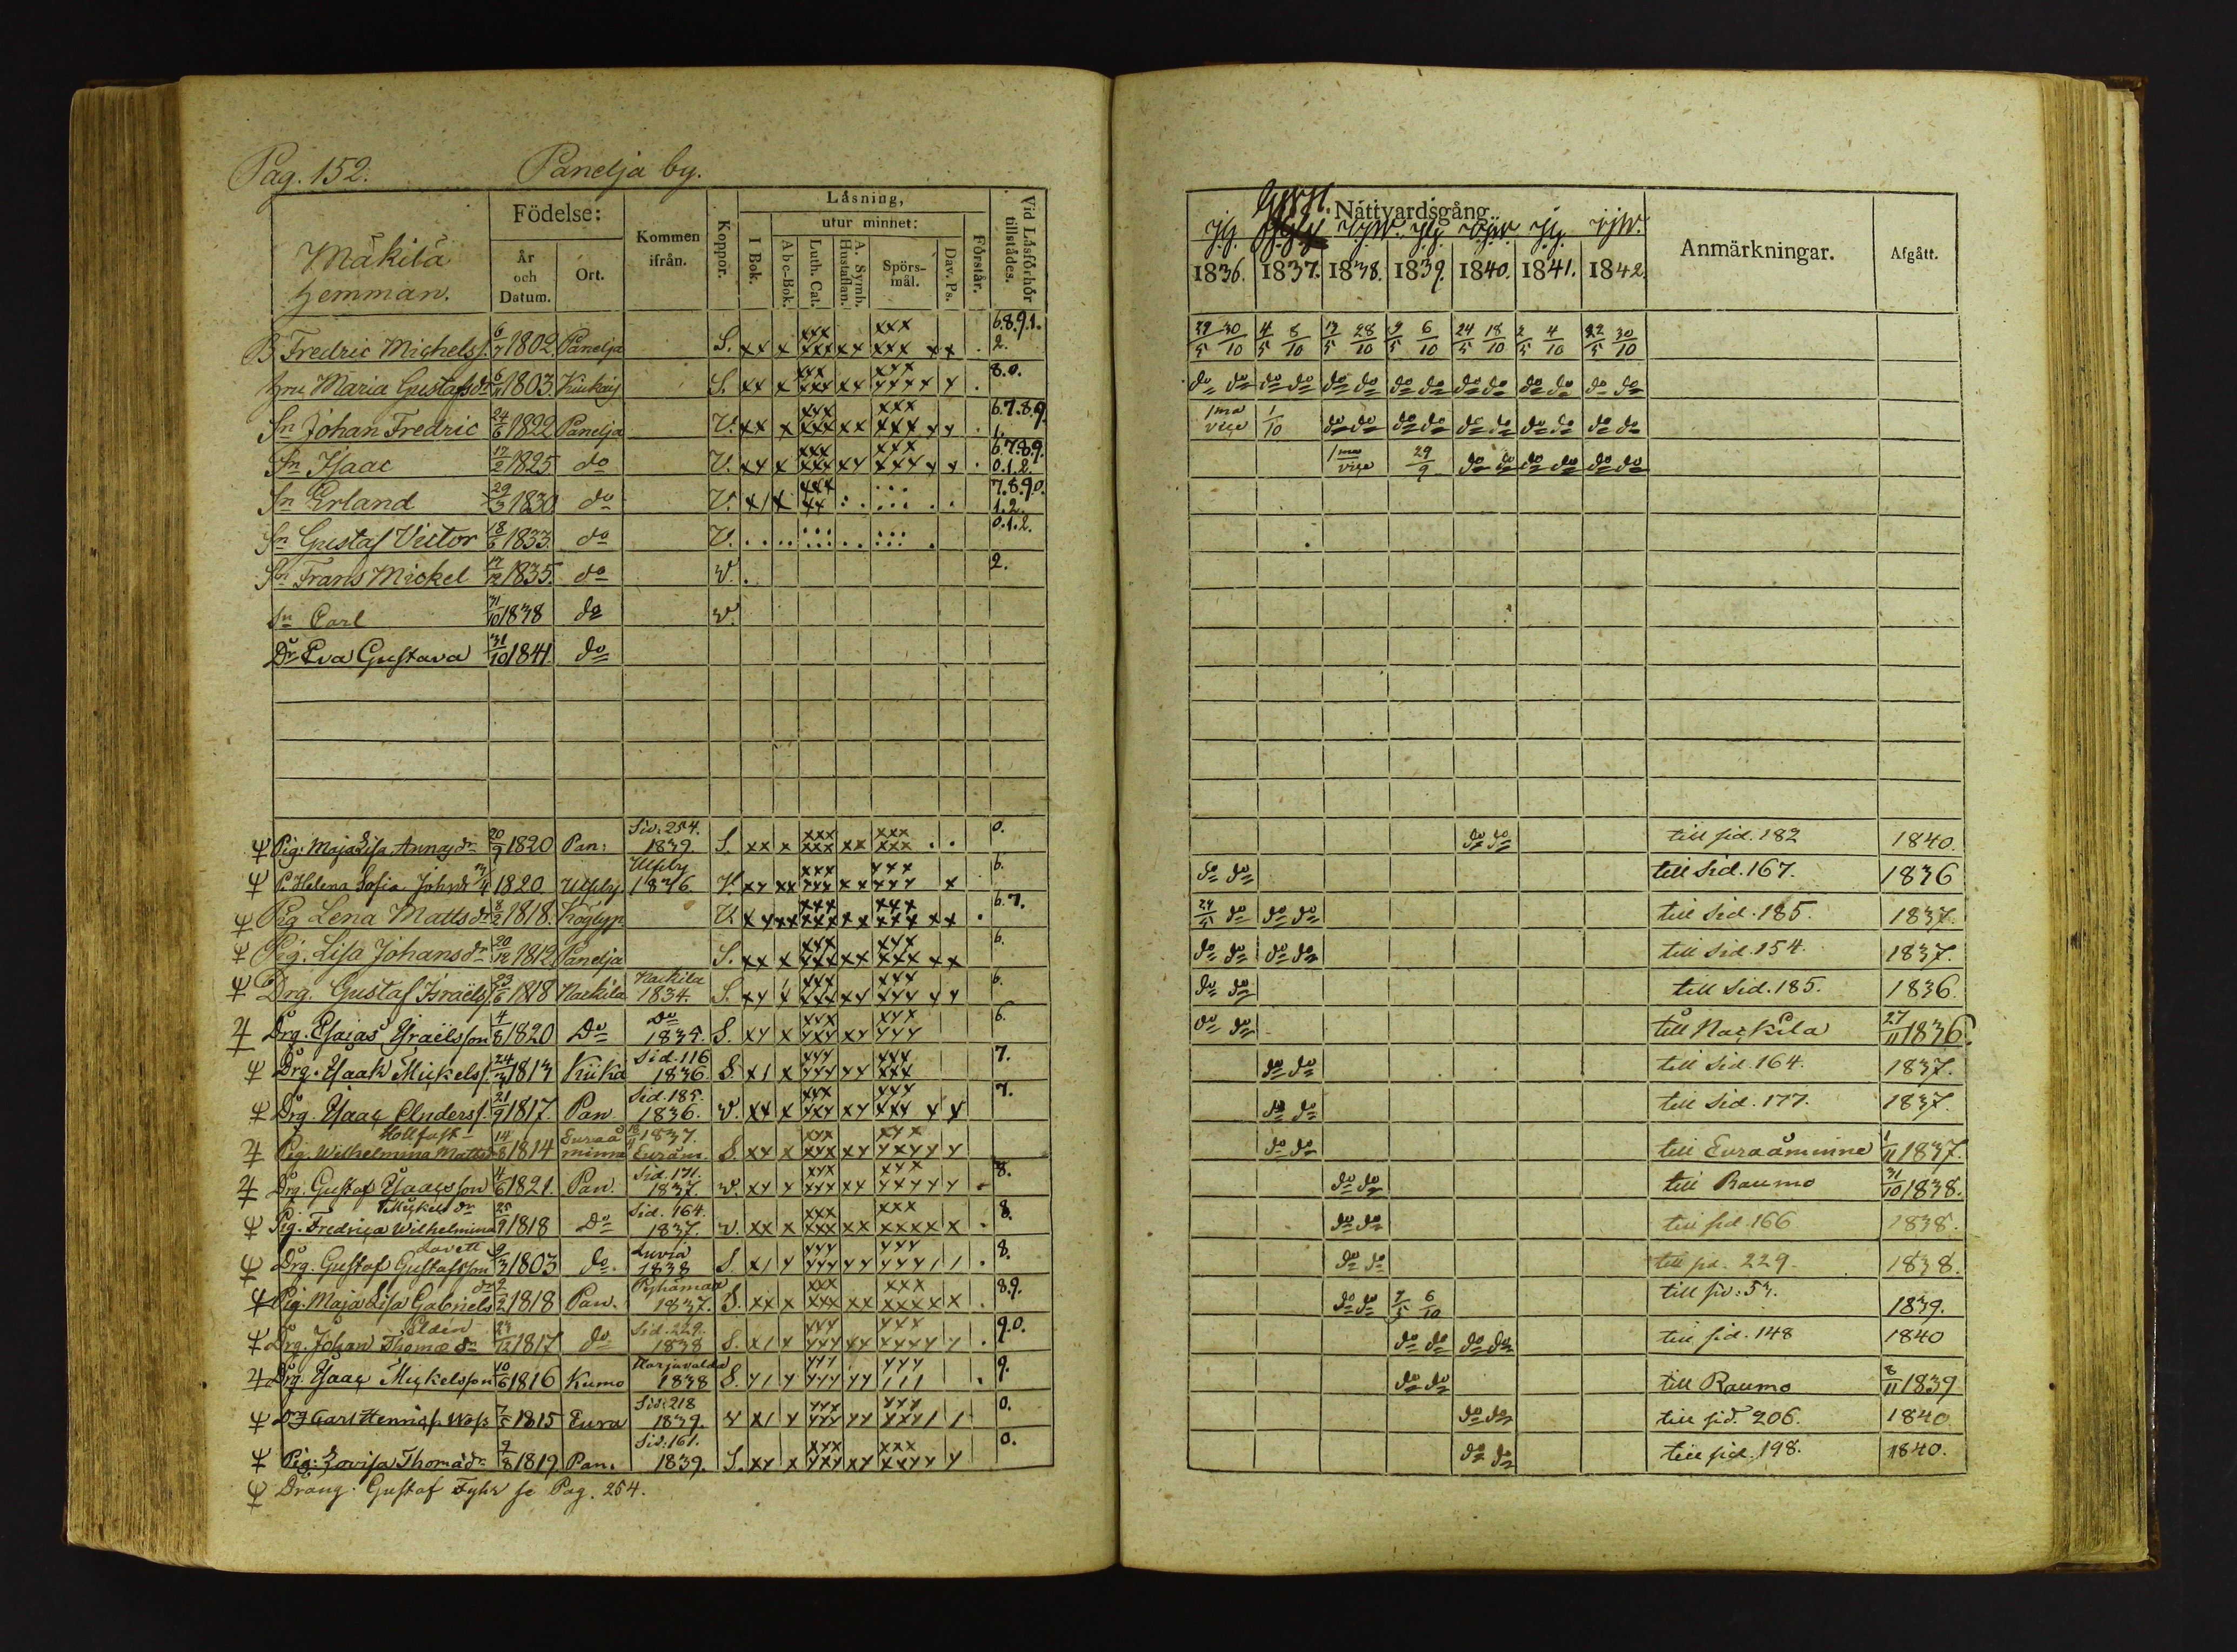 Pag. 152. Panelja by.
Mäkilä hemman.
Födelse:
År och Datum.
Ort.
Kommen ifrån.
Koppor.
Låsning,
I Bok.
utur minnet:
A b c-Bok.
Luth. Cat.
A. Symb. Hustaflan.
Spörsmål.
Dav. Ps.
Förstår.
Vid Låsförhör tillstädes.
Nattvardsgång.
1836. 1837. 1838. 1839. 1840. 1841. 1842.
Anmärkningar.
Afgått.
B Fredric Michelss. 6/7 1802 Panelja S. xx x xxx xxx xx xxx xxx xx . 6.8.9.1. 2. 29/5 30/10 4/5 8/10 13/5 28/10 9/5 6/10 24/5 18/10 2/5 4/10 22/5 30/10
Hru Maria Gustafsdr 1803 Kiukais S. xx x xxx xxx xx xxx xxxx x . 8.0. do do do do do do do do do do do do do do
Sn Johan Fredric 24/6 1822 Panelja V. xx x xxx xxx xx xxx xxx xx . 6.7.8.9. 1. 1ma vice 1/10 do do do do do do do do do do
Sn Isaac 17/2 1825 do V. xx x xxx xxx xx xxx xxx x x . 6.7.8.9. 0.1.2. 1ma vice 29/9 do do do do do do
Sn Erland 29/3 1830 do V. x/ x xxx xx 7.8.9.0. 1.2.
Sn Gustaf Victor 18/6 1833. do V. 0.1.2.
Sn Frans Mickel 17/12 1835. do v. 2.
Sn Carl 31/10 1838 do v.
Dr Eva Gustava 31/10 1841. do
Pig: Maja Lisa Annasdr 20/9 1820 Pan: Sid: 254. 1839. S. xx x xxx xxx xx xxx xxx . . 0. do do till sid. 182 1840.
P. Helena Sofia Johsdr 1820 Ulfsby Ulfsby 1836 V. xx xx xxx xxx xx xxx xxx x 6. do do till Sid. 167. 1836
Pig Lena Mattsdr 8/2 1818. V. xx xx xxx xxx xx xxx xxx xx . 6.7. 29/5 do do do till Sid. 185. 1837.
Pig. Lisa Johansdr 20/12 1812 Panelja S. xx x xxx xxx xx xxx xxx xx 6. do do do do till Sid. 154. 1837.
Drg. Gustaf Israëls. 23/6 1818 Nackila Nackila 1834. S. xx x xxx xxx xx xxx xxx xx 6. do do till Sid. 185. 1836.
Drg. Esaias Israëlsson 4/8 1820 Do Do 1835. S. xx x xxx xxx xx xxx xxx 6. do do till Nackila 27/11 1836.
Drg. Isaak Mickels. 24/3 1813 Kiika Sid. 116 1836. S. x/ x xxx xxx xx xxx xxx 7. do do till Sid. 164. 1837.
Drg. Isaac Anderss. 21/9 1817. Pan. Sid. 185. 1836. v. xx x xxx xxx xx xxx xxx x x 7. do do till Sid. 177. 1837.
Hollfast
Pig. Wilhelmina Mattsdr 14/8 1814 Euraåminne 1837. Euråm. S. xx x xxx xxx xx xxx xxxx x do do till Euraåminne 1/11 1837.
Drg. Gustaf Isaacsson 4/6 1821. Pan. Sid. 171. 1837. v. xx x xxx xxx xx xxx xxxx x 8. do do till Raumo 31/10 1838.
Mickelsdr
Pig. Fredrica Wilhelmina 25/9 1818 Do Sid. 164. 1837. v. xx x xxx xxx xx xxx xxxx x . 8. do do till sid. 166 1838.
Lovett
Drg. Gustaf Gustafsson 9/3 1803 do. Luvia 1838 S. x/ x xxx xxx xx xxx xxx / / . 8. do do till sid. 229. 1838.
Pig. Maja Lisa Gabrielsdr 2/2 1818 Pan. Pyhämaa 1837. S. xx x xxx xxx xx xxx xxxx x . 8.9. do do 9/5 6/10 till sid: 53. 1839.
Elden
Drg. Johan Thomæ Sn 23/12 1817 do. Sid. 229. 1838 S. x/ x xxx xxx xx xxx xxxx x . 9.0. do do do do till sid. 148 1840
Drg. Isaac Mickelsson 10/6 1816 Kumo Harjavalda 1838 S. x/ x xxx xxx xx xxx /// . 9. do do till Raumo 8/11 1839
Dg Carl Henrics. 7/5 1815 Eura Sid: 218 1839. v x/ x xxx xxx xx xxx xxx / / 0. do do till sid. 206. 1840
Pig: Lovisa Thomædr 9/8 1819 Pan. Sid: 161. 1839. S. xx x xxx xxx xx xxx xxxx x 0. do do till sid. 198. 1840.
Dräng: Gustaf Fyhr se Pag. 254.